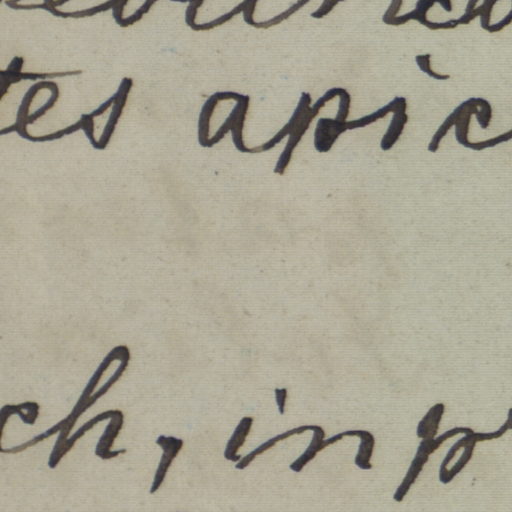 tes apic
ch, in p